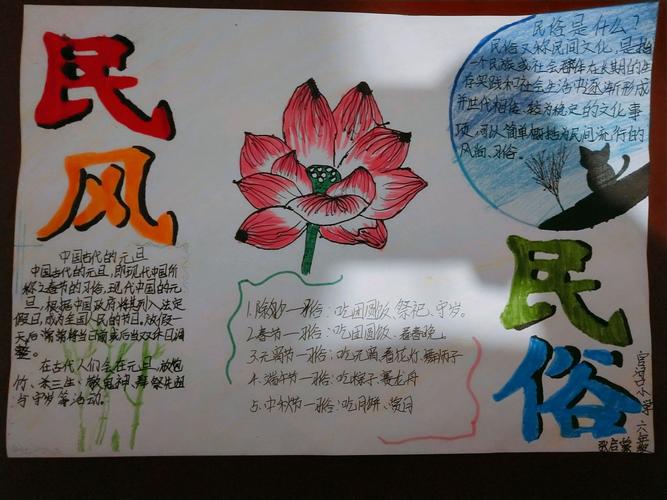 民风
中国古代的元旦
中国古代的元旦,即现代中国所
称之春节的习俗,现代中国的元
旦,根据中国政府将其列入法定
假日,成为全国人民的节日,放假一
天后常常将当日前或后当双休日调
整。
在古代人们会在元旦放炮
竹、杀三生、敬鬼神、拜祭先祖
与守岁等活动。
1.除夕一习俗:吃团圆饭,祭祀、守岁。
2.春节一习俗:吃团圆饭、看春晚。
3.元宵节一习俗:吃元宵、看花灯、舞狮子
4.端午节一习俗:吃粽子、赛龙舟
5.中秋节一习俗:吃月饼、赏月
民俗是什么?
民俗又称民间文化,是指
一个民族或社会群体在长期的生
存实践和社会生活中逐渐形成
并世代相传、较为稳定的文化事
项,可以简单概括为民间流行的
风尚、习俗。
民俗
小学 六年级